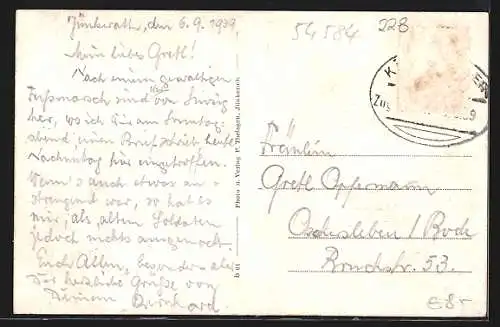 Jünkerath, den 6.9.1939
Mein liebes Gretl!
Nach einem gewaltigen
Fußmarsch sind wir von Sinzig
her, wo ich Dir am Sonntag
abend einen Brief schrieb heute
Nachmittag hier eingetroffen.
Wenn's auch etwas an =
strengend war, so hat es
mir, als altem Soldaten
jedoch nichts ausgemacht.
Euch Allen, besonders aber
Dir herzliche Grüße von
Deinem Bernhard.
Photo u. Verlag P. Jünkerath
54584
228
Fräulein
Gretl Opfermann
Oschersleben / Bode
Bruchstr. 53.